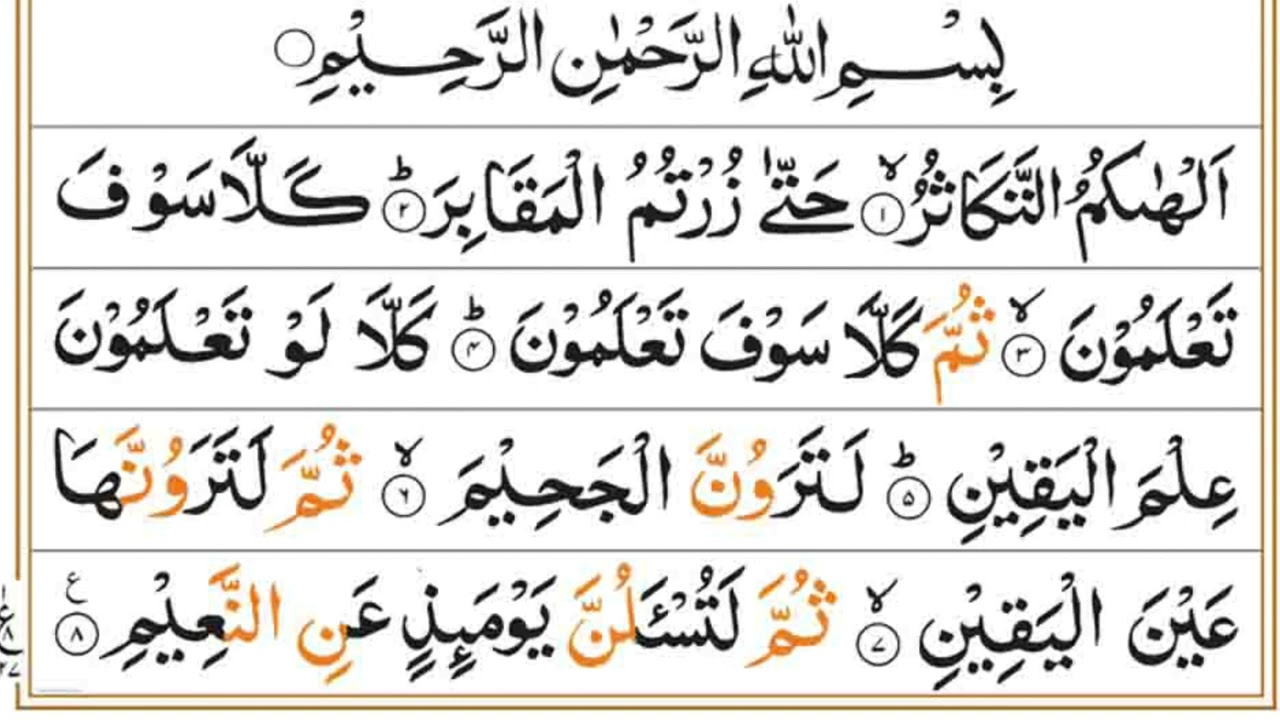 بِسْمِ اللّٰهِ الرَّحْمٰنِ الرَّحِيْمِ
اَلْهٰىكُمُ التَّكَاثُرُ ۙ﴿۱﴾ حَتّٰى زُرْتُمُ الْمَقَابِرَ ؕ﴿۲﴾ كَلَّا سَوْفَ
تَعْلَمُوْنَ ۙ﴿۳﴾ ثُمَّ كَلَّا سَوْفَ تَعْلَمُوْنَ ؕ﴿۴﴾ كَلَّا لَوْ تَعْلَمُوْنَ
عِلْمَ الْيَقِيْنِ ؕ﴿۵﴾ لَتَرَوُنَّ الْجَحِيْمَ ۙ﴿۶﴾ ثُمَّ لَتَرَوُنَّهَا
عَيْنَ الْيَقِيْنِ ۙ﴿۷﴾ ثُمَّ لَتُسْئَلُنَّ يَوْمَىِٕذٍ عَنِ النَّعِيْمِ ﴿۸﴾ ع